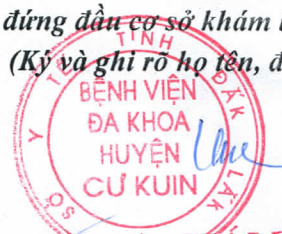 đứng đầu cơ sở khám
(Ký và ghi rõ họ tên, đ
SỞ Y TẾ TỈNH ĐẮK LẮK
BỆNH VIỆN
ĐA KHOA
HUYỆN
CƯ KUIN